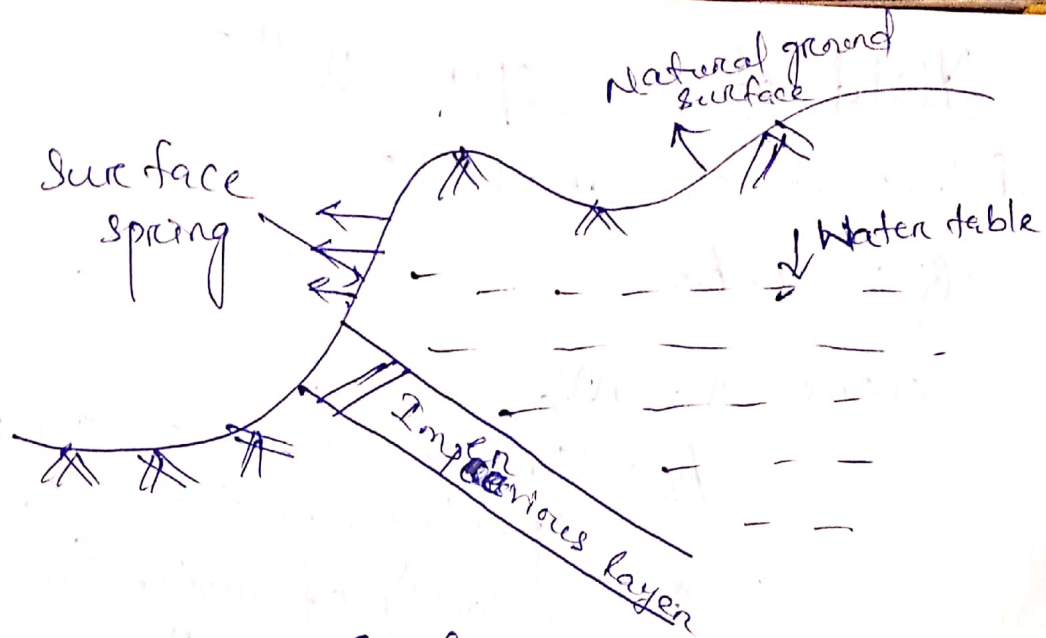 Natural ground
surface
Surface
spring
Water table
Impervious layer